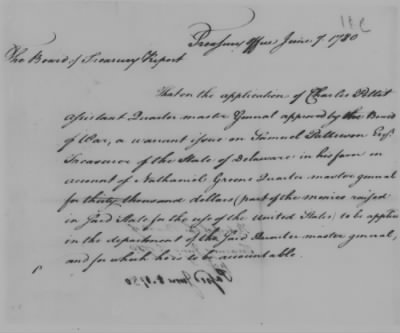 Treasury Office June 7 1780
The Board of Treasury Report
That on the application of Charles Pettit
Assistant Quarter master General approved by the Board
of War, a warrant issue on Samuel Patterson Esqr
Treasurer of the State of Delaware in his favor on
account of Nathaniel Greene Quarter master general
for thirty thousand dollars (part of the monies raised
in said State for the use of the United States) to be applied
in the department of the said Quarter master general,
and for which he is to be accountable.
Passd June 8. 1780